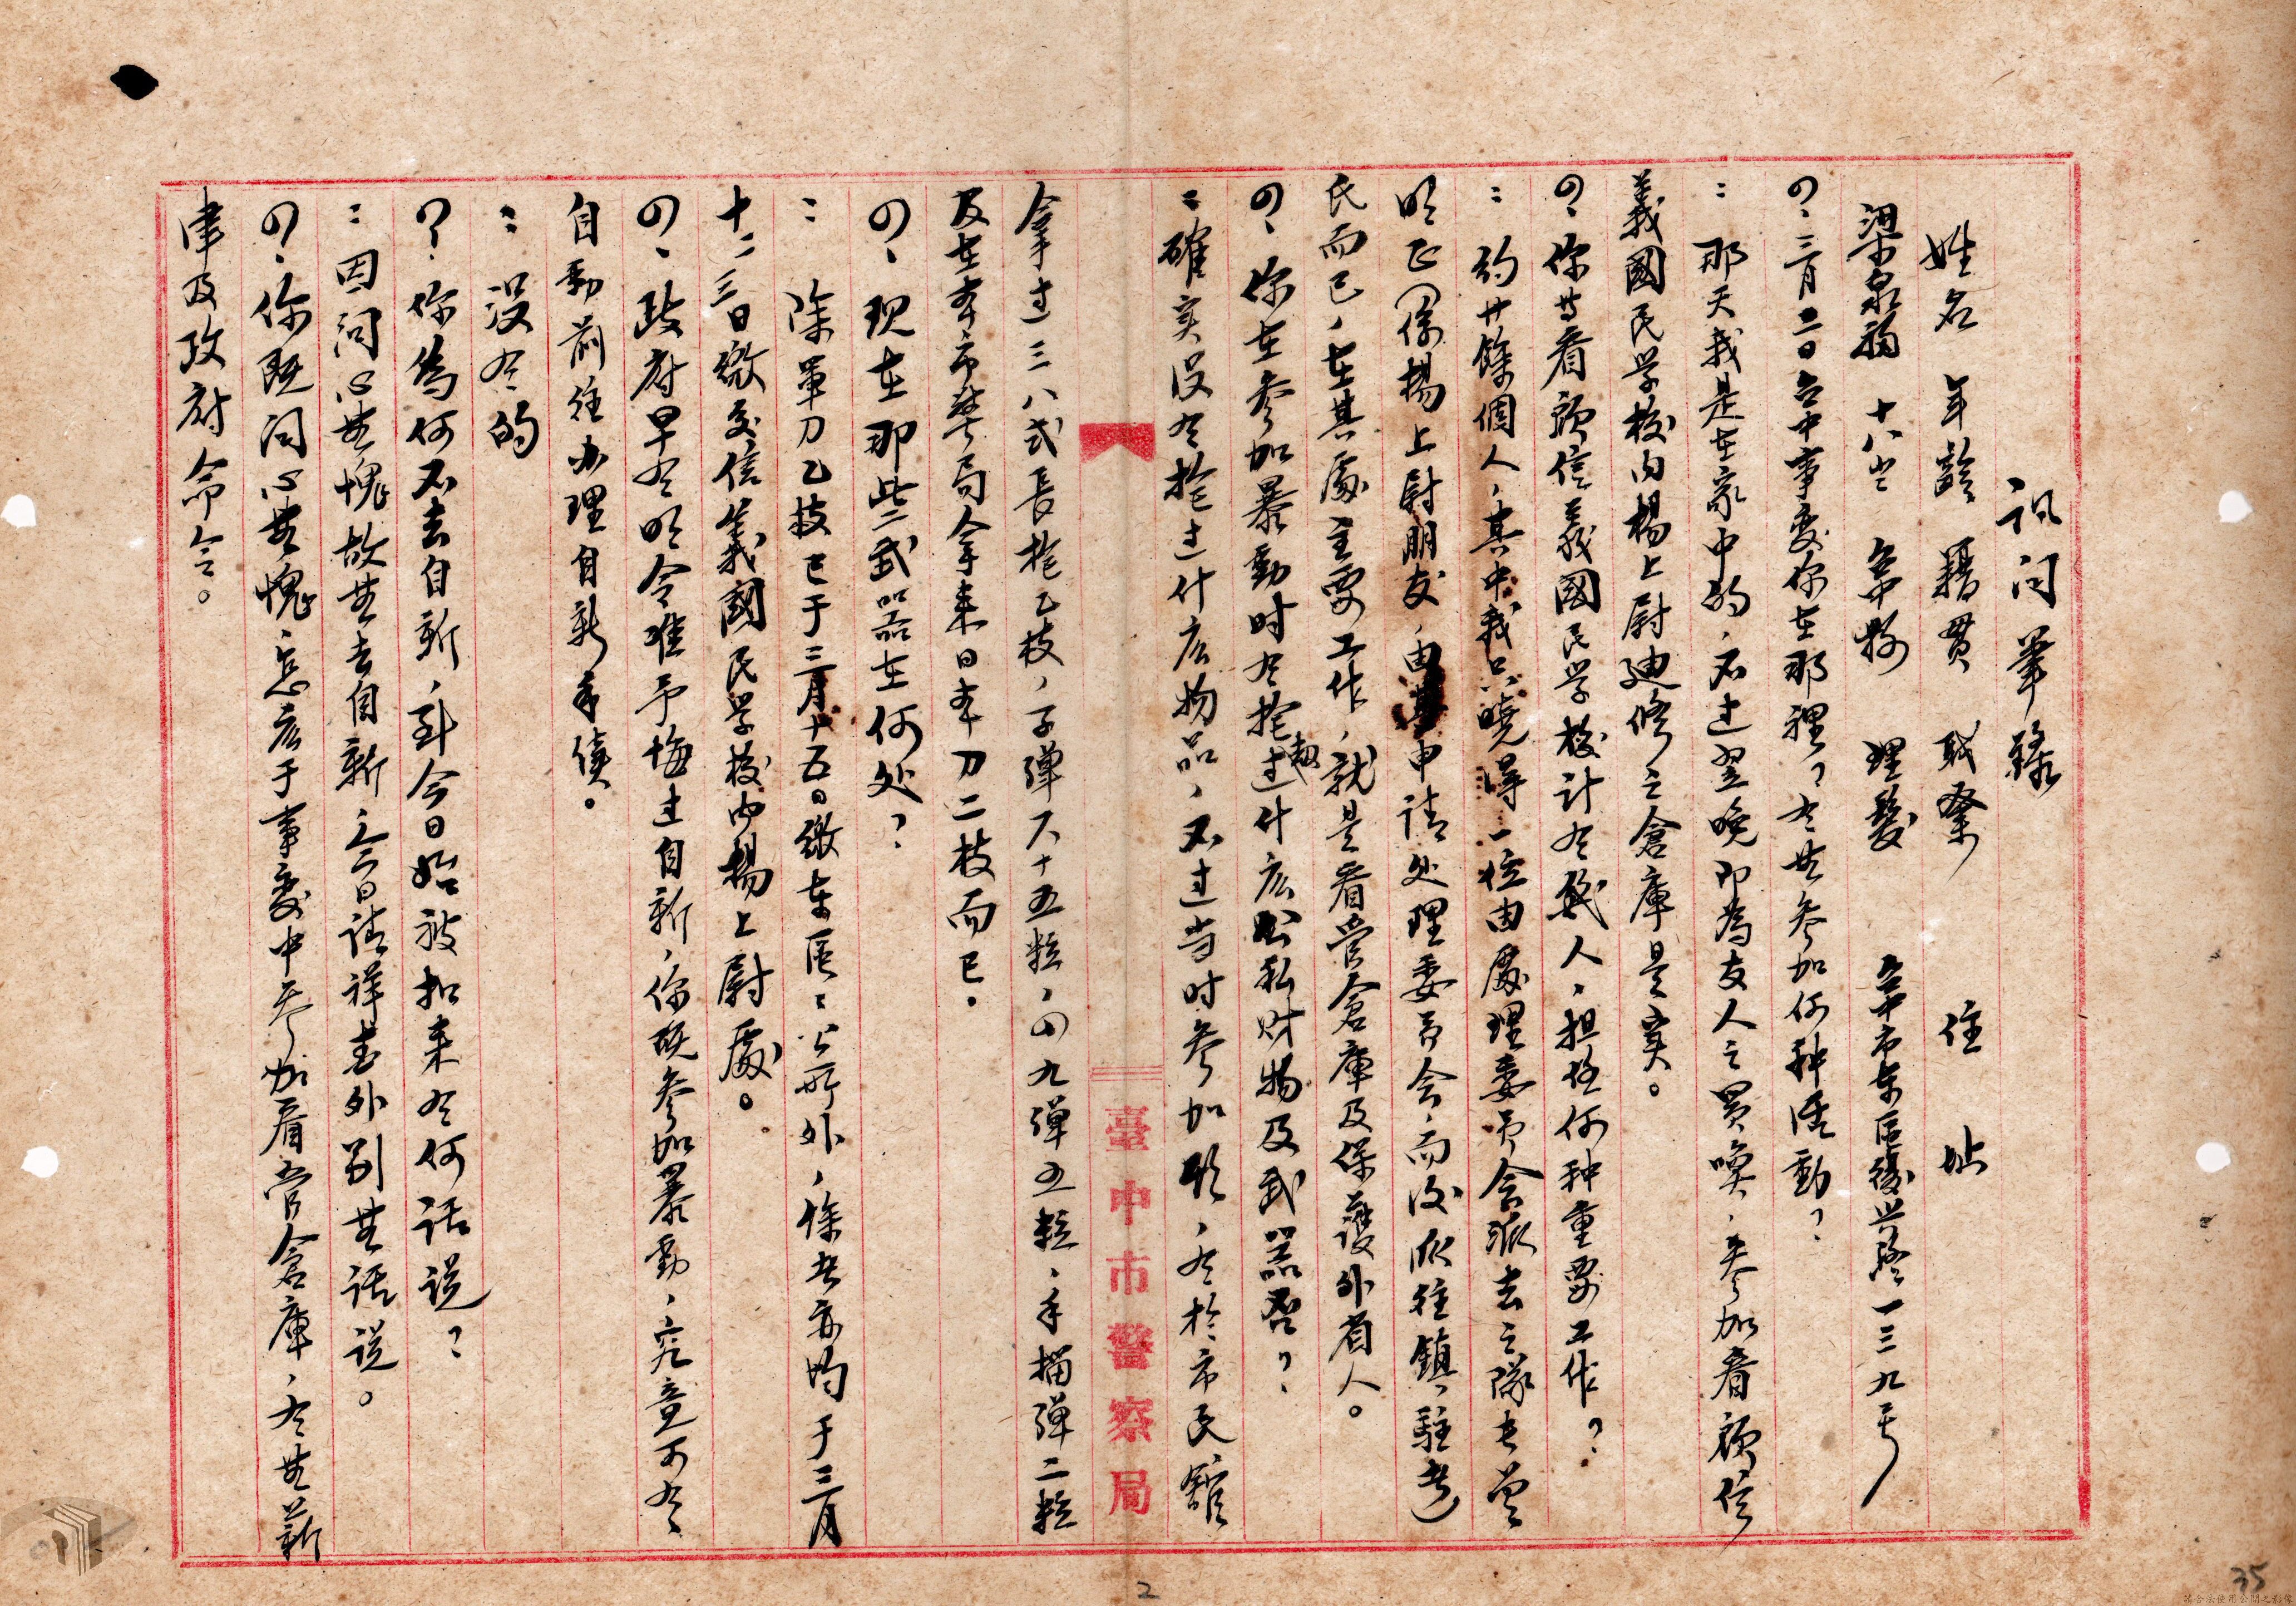 訊问筆錄
姓名 年齡 籍貫 職業 住址
梁泉福 十八岁 台中縣 理髮 台中市東區復兴路一三九号
问、三月二日台中事变你在那裡？有無参加何种活動？
：那天我是在家中的，不过翌晚即為友人之買喚，参加看顧信
義國民学校内楊上尉廸修之倉庫是实。
问、你等看顧信義國民学校計有幾人，担任何种重要工作？
：約廿餘個人，其中我只曉得一位由處理委员会派去之隊长曾
明正（係楊上尉朋友，由申請处理委员会，而後派往鎮駐者）
氏而已，在其處主要工作，就是看管倉庫及保護外省人。
问、你在参加暴動时有搶劫过什広公私財物及武器否？
：確实没有搶过什広物品，不过当时参加形，有於市民舘
拿过三八式長槍乙枝，子彈六十五粒，四九彈五粒，手榴彈二粒
及在本市警局拿来日本刀二枝而已。
问、现在那些武器在何处？
：除軍刀乙枝已于三月十五日繳東區區公所外，餘者亦均于三月
十二三日繳交信義國民学校内楊上尉處。
问、政府早有明令准予悔过自新，你既参加暴動，究竟可有
自動前往办理自新手續。
：没有的
问、你為何不去自新，到今日始被扣来有何话说？
：因问心無愧故無去自新，今日請詳查外別無话说。
问、你既问心無愧，怎広于事变中参加看管倉庫，有無蔪
事及政府命令。
臺中市警察局
2
35